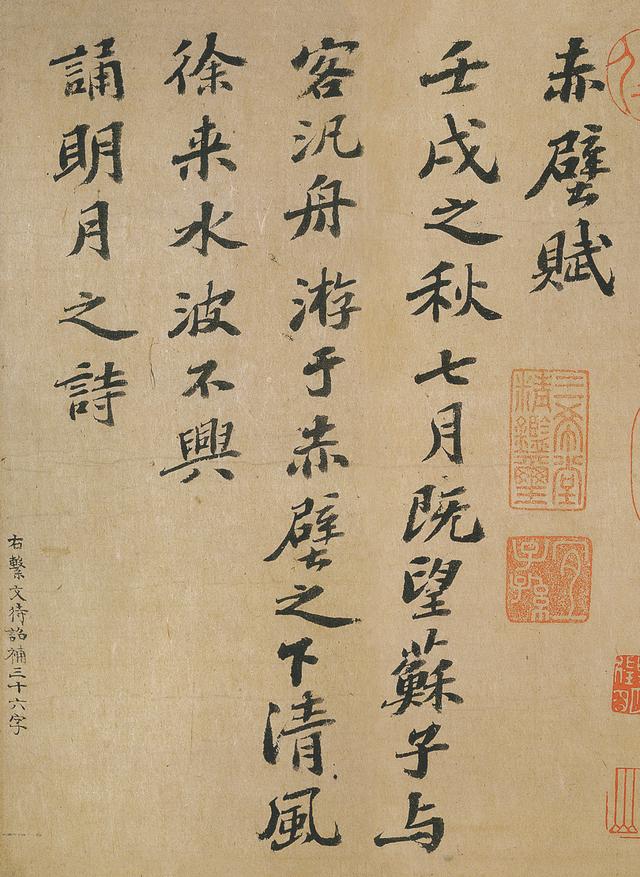 赤壁賦
三希堂
精鑑璽
宜
子孫
壬戌之秋七月既望蘇子与
客汎舟游于赤壁之下清風
徐来水波不興
誦明月之詩
右繫文待詔補三十六字